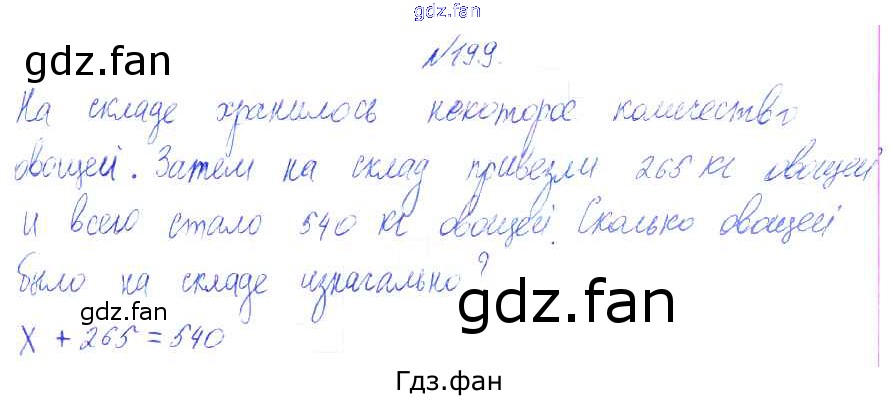 gdz.fan
gdz.fan
№199.
На складе хранилось некоторое количество
овощей. Затем на склад привезли 265 кг овощей
и всего стало 540 кг овощей. Сколько овощей
было на складе изначально?
gdz.fan
gdz.fan
X + 265 = 540
Гдз.фан